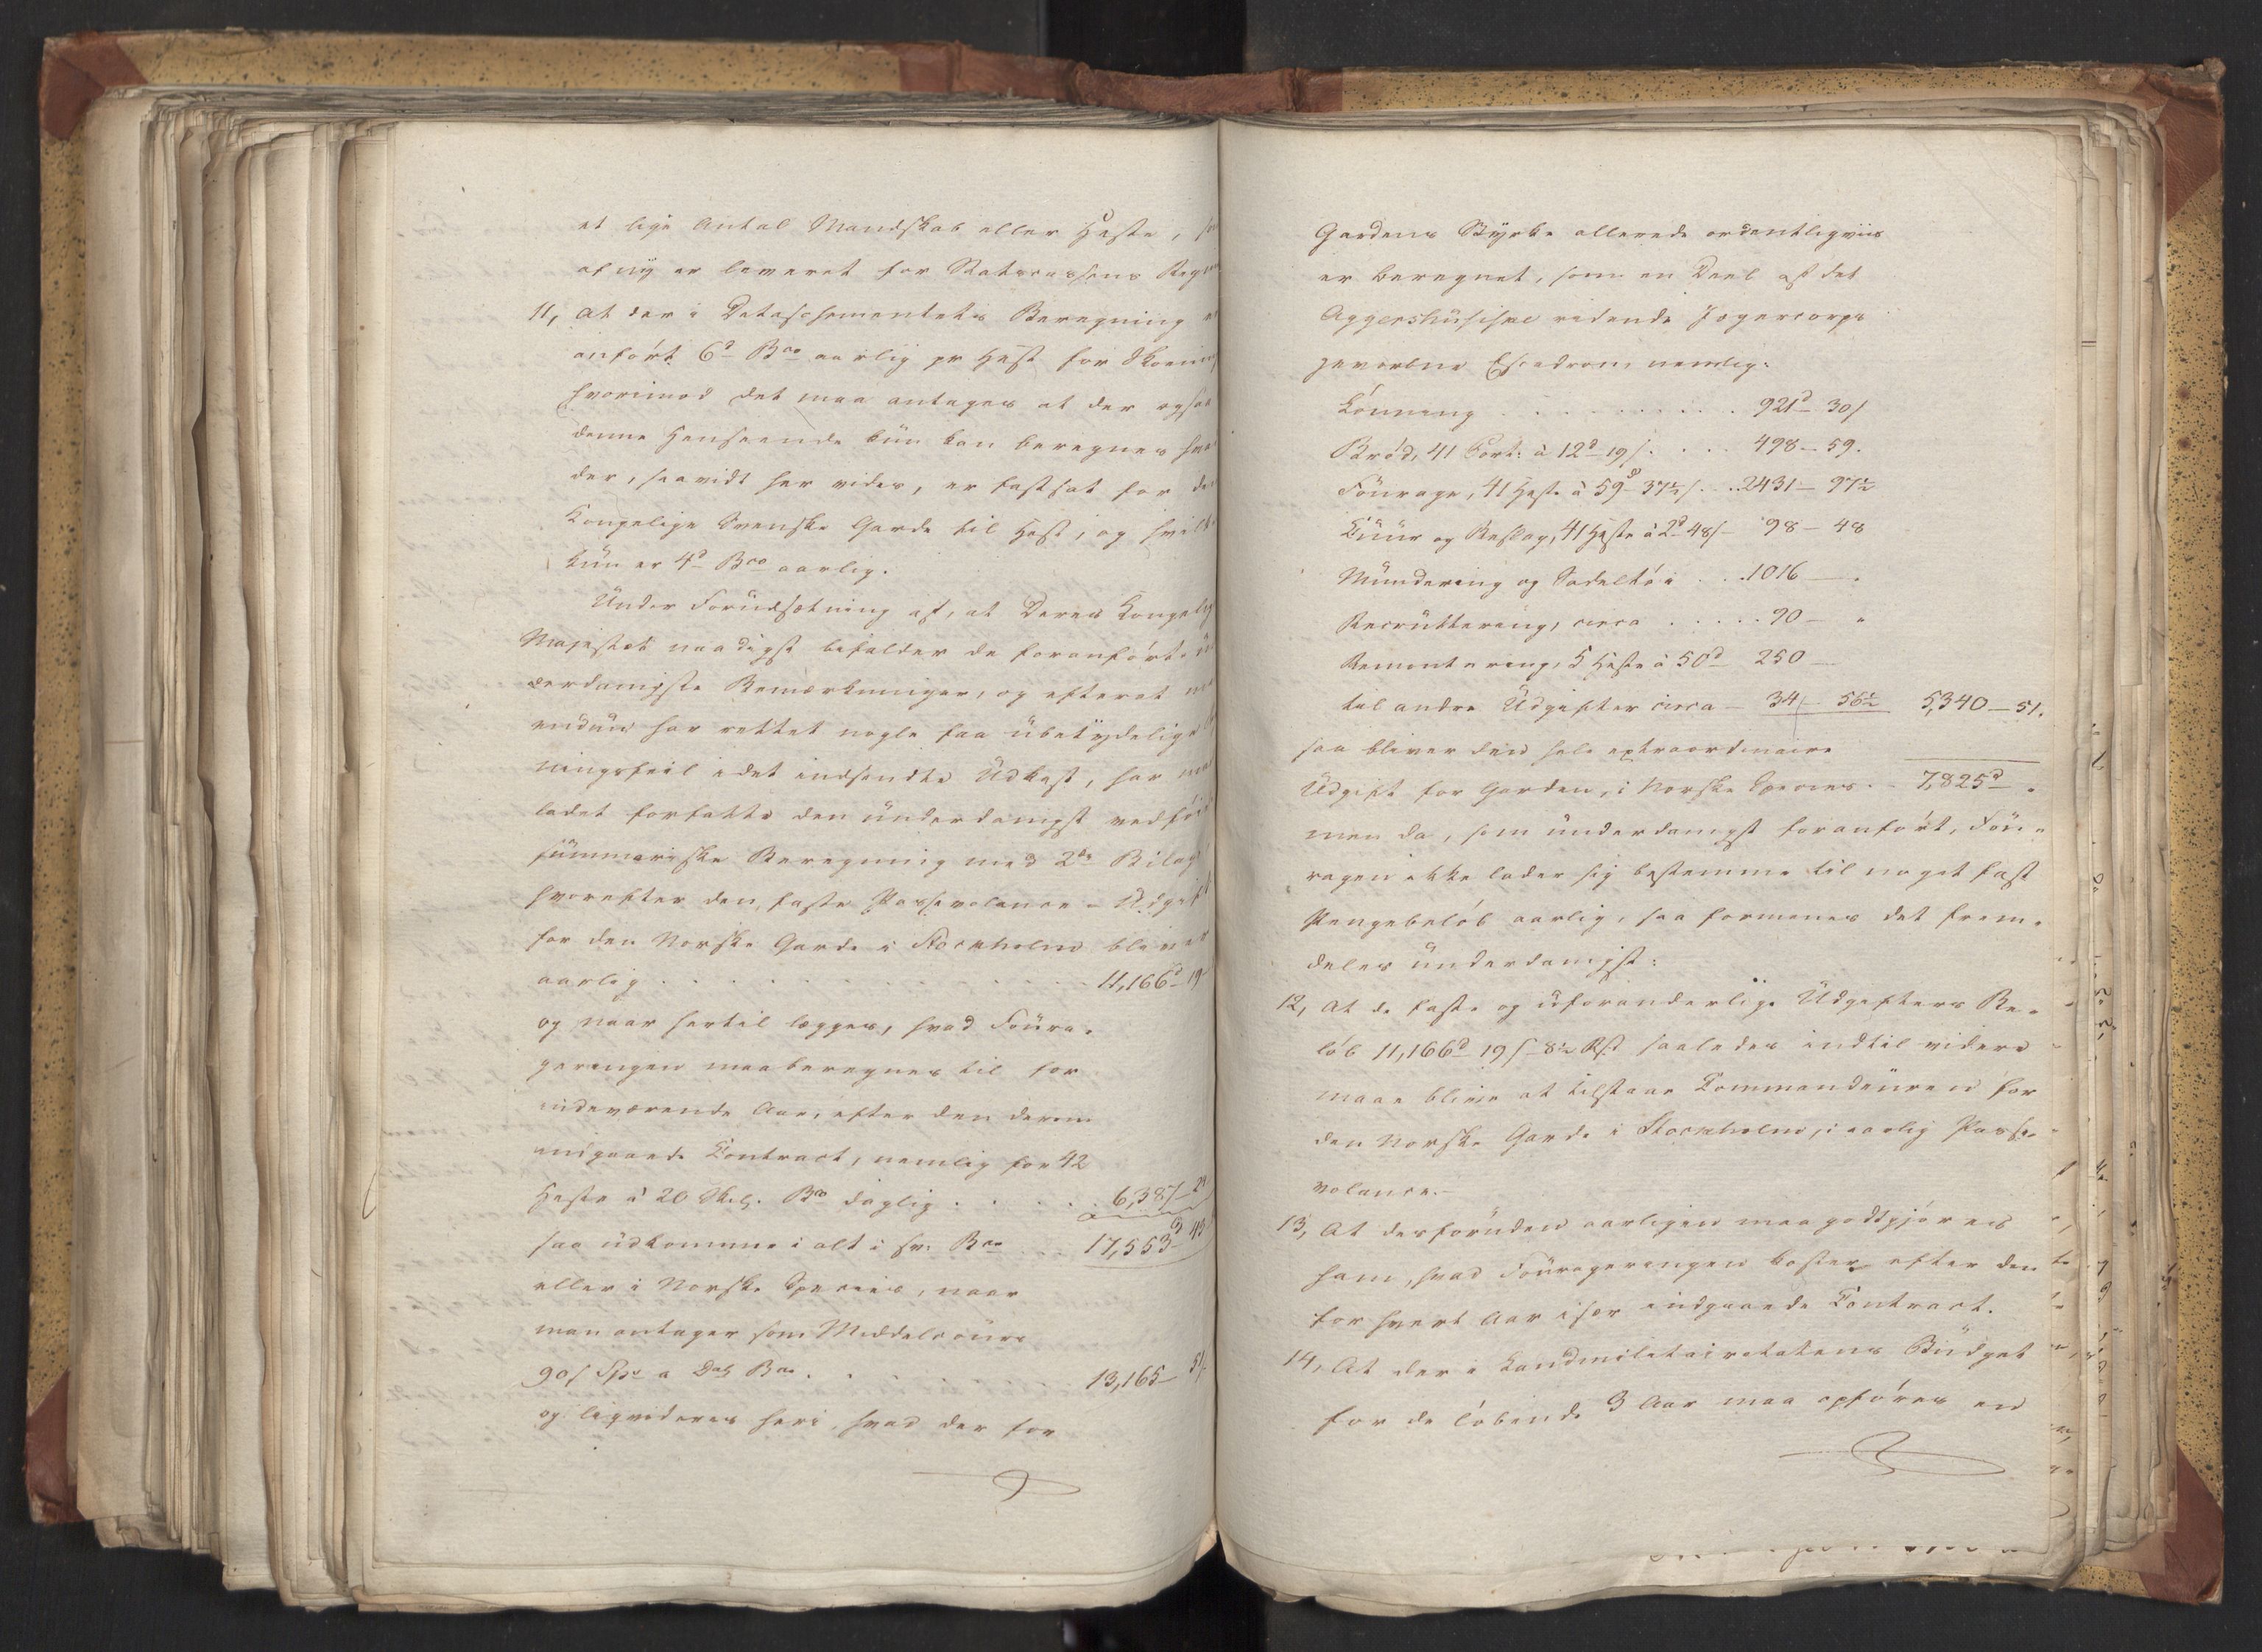 et lige Antal Mandskab eller Heste,
af ny er leveret for Statscassens
11, at der i Detaschementets Beregning
anført 6d Bco aarlig pr Hest for Skoening
hvorimod det maa antages at der ogsaa
denne Henseende kun kan beregnes
der, saavidt her vides, er fastsat for
Kongelige Svenske Garde til Hest, og
kun er 4d Bco aarlig.
Under Forudsætning af, at Deres Kongelig
Majestæt naadigst bifalder de foranførte
derdanigste Bemærkninger, og efterat
endnu har rettet nogle faa ubetydelige
ningsfeil i det indsendte Udkast, har
ladet forfatte den underdanigst vedføiede
summariske Beregning med 2de Bilag
hvorefter den faste Passevolance-Udgift
for den Norske Garde i Stockholm bliver
aarlig . . . . . . 11,166d 19
og naar hertil lægges, hvad Foura-
geringen maa beregnes til for
indeværende Aar, efter den derom
indgaaede Contract, nemlig for 42
Heste à 20 Skil. Bco daglig . . . . 6,387 -
saa udkomme i alt i sv. Bco 17,553d
eller i Norske Species, naar
man antager som Middelcours
90/ Spe a Bco . . . 13,165 - 51
og liqvideres heri, hvad der for
Gardens Styrke allerede ordentligviis
er beregnet, som en Deel af det
Aggershusiske ridende Jægercorps
gevorbne Escadron, nemlig:
Lønning . . . . . . . 921d 30/
Brød, 41 Port: à 12d 19/ . . . 498 - 59.
Fourage, 41 Heste à 59d 37½/ . . 2431 - 97½
Cuur og Beslag, 41 Heste à 2d 48/ - 98 - 48
Mundering og Sadeltøi . . . 1016 - "
Recruttering, circa . . . . . 90 - "
Remontering, 5 Heste à 50d 250 -
til andre Udgifter circa - 34 - 56½ 5,340 - 51.
saa bliver den hele extraordinaire
Udgift for Garden, i Norske Species. - 7,825d "
men da, som underdanigst foranført, Fou-
ragen ikke lader sig bestemme til noget fast
Pengebeløb aarlig, saa formenes det frem-
deles underdanigst:
12, At de faste og uforanderlige Udgifters Be-
løb 11,166d 19/ 8½ Rst saaledes indtil videre
maae blive at tilstaae Commandeuren for
den Norske Garde i Stockholm, i aarlig Passe-
volance. -
13, At desforuden aarligen maa godtgjøres
ham, hvad Fourageringen koster efter den
for hvert Aar især indgaaede Contract.
14, At der i Landmilitairetatens Budget
for de løbende 3 Aar maa opføres en